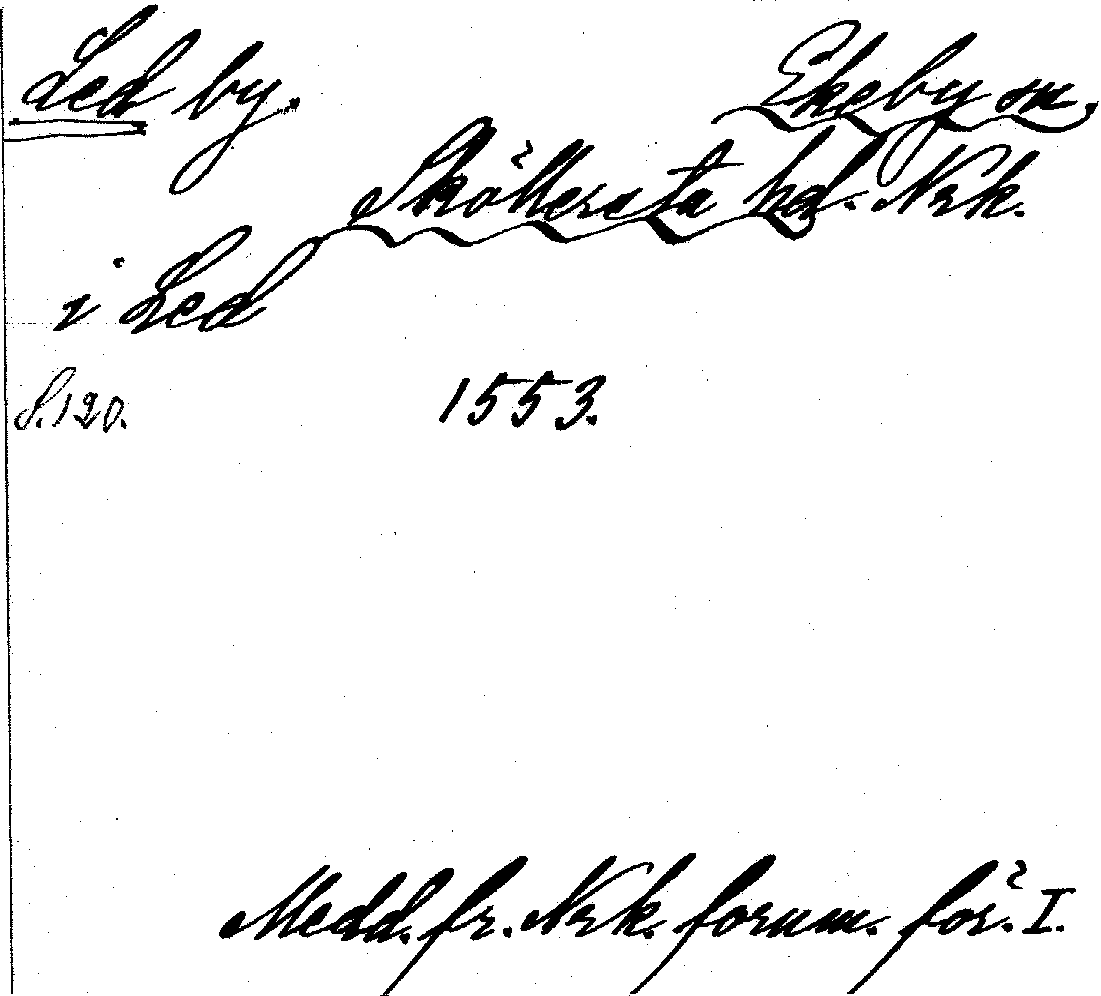 Led by. Ekeby sn.
Sköllersta hd. Nrk.
i Led
S. 120. 1553.
Medd. fr. Nrk. fornm. för. I.